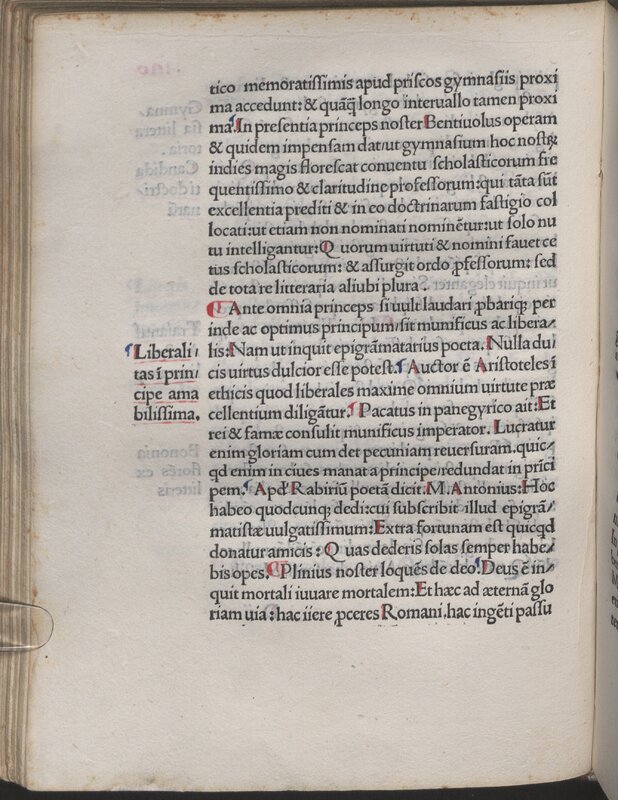 tico memoratissimis apud priscos gymnasiis proxi
ma accedunt: & quāq̄ longo interuallo tamen proxi
ma. In presentia princeps noster Bentiuolus operam
& quidem impensam dat/ut gymnasium hoc nostꝝ
indies magis florescat conuentu scholasticorum fre
quentissimo & claritudine professorum: qui tāta sūt
excellentia prediti & in eo doctrinarum fastigio col
locati: ut etiam non nominati nominētur: ut solo nu
tu intelligantur: Quorum uirtuti & nomini fauet ce
tus scholasticorum: & assurgit ordo ꝓfessorum: sed
de tota re litteraria aliubi plura.
Ante omnia princeps si uult laudari ꝓbariqꝫ per
inde ac optimus principum/sit munificus ac libera/
lis: Nam ut inquit epigrāmatarius poeta. Nulla du/
cis uirtus dulcior esse potest. Auctor ē Aristoteles ī
ethicis quod liberales maxime omnium uirtute præ
cellentium diligātur. Pacatus in panegyrico ait: Et
rei & famæ consulit munificus imperator. Lucratur
enim gloriam cum det pecuniam reuersuram. quic/
qd enim in ciues manat a principe/redundat in prīci
pem. Apd' Rabiriū poetā dicit. M. Antonius: Hoc
habeo quodcunqꝫ dedi: cui subscribit illud epigrā/
matistæ uulgatissimum: Extra fortunam est quicqd
donatur amicis: Quas dederis solas semper habe/
bis opes. Plinius noster loquēs de deo. Deus ē in/
quit mortali iuuare mortalem: Et hæc ad æternā glo
riam uia: hac iiere ꝓceres Romani. hac ingēti passu
Liberali/
tas ī prin/
cipe ama
bilissima.